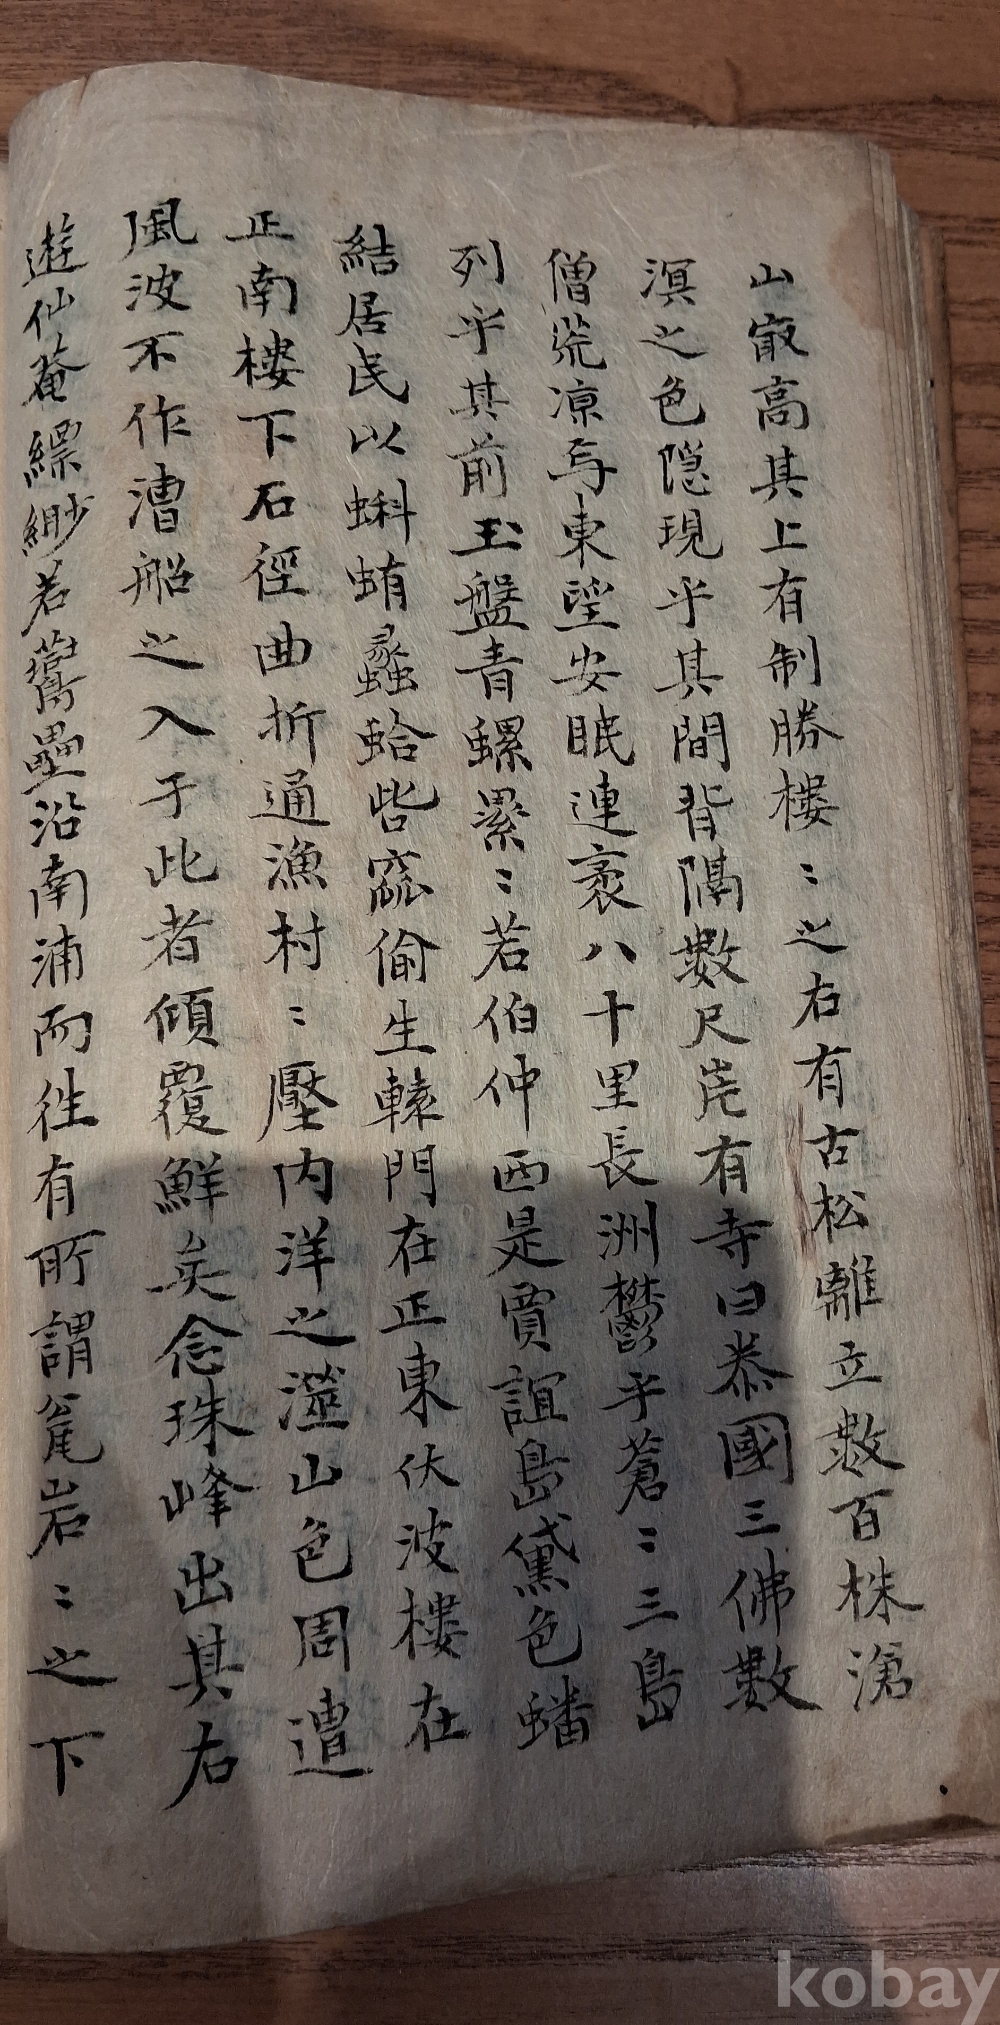 山㝡高其上有制勝樓〻之右有古松離立數百株滄
溟之色隐現乎其間背隔數尺岸有寺曰泰國三佛數
僧荒凉与東望安眠連袤八十里長洲鬱乎蒼〻三島
列乎其前玉盤青螺累〻若伯仲西是賈誼島黛色蟠
結居民以蝌蛕蠡蛤呰窳偷生轅門在正東伏波樓在
正南樓下石徑曲折通漁村〻壓内洋之濫山色周遭
風波不作漕船之入于此者傾覆鮮矣念珠峰出其右
遊仙菴縹緲若鸞壘沿南浦而徃有所謂窰岩〻之下
kobay